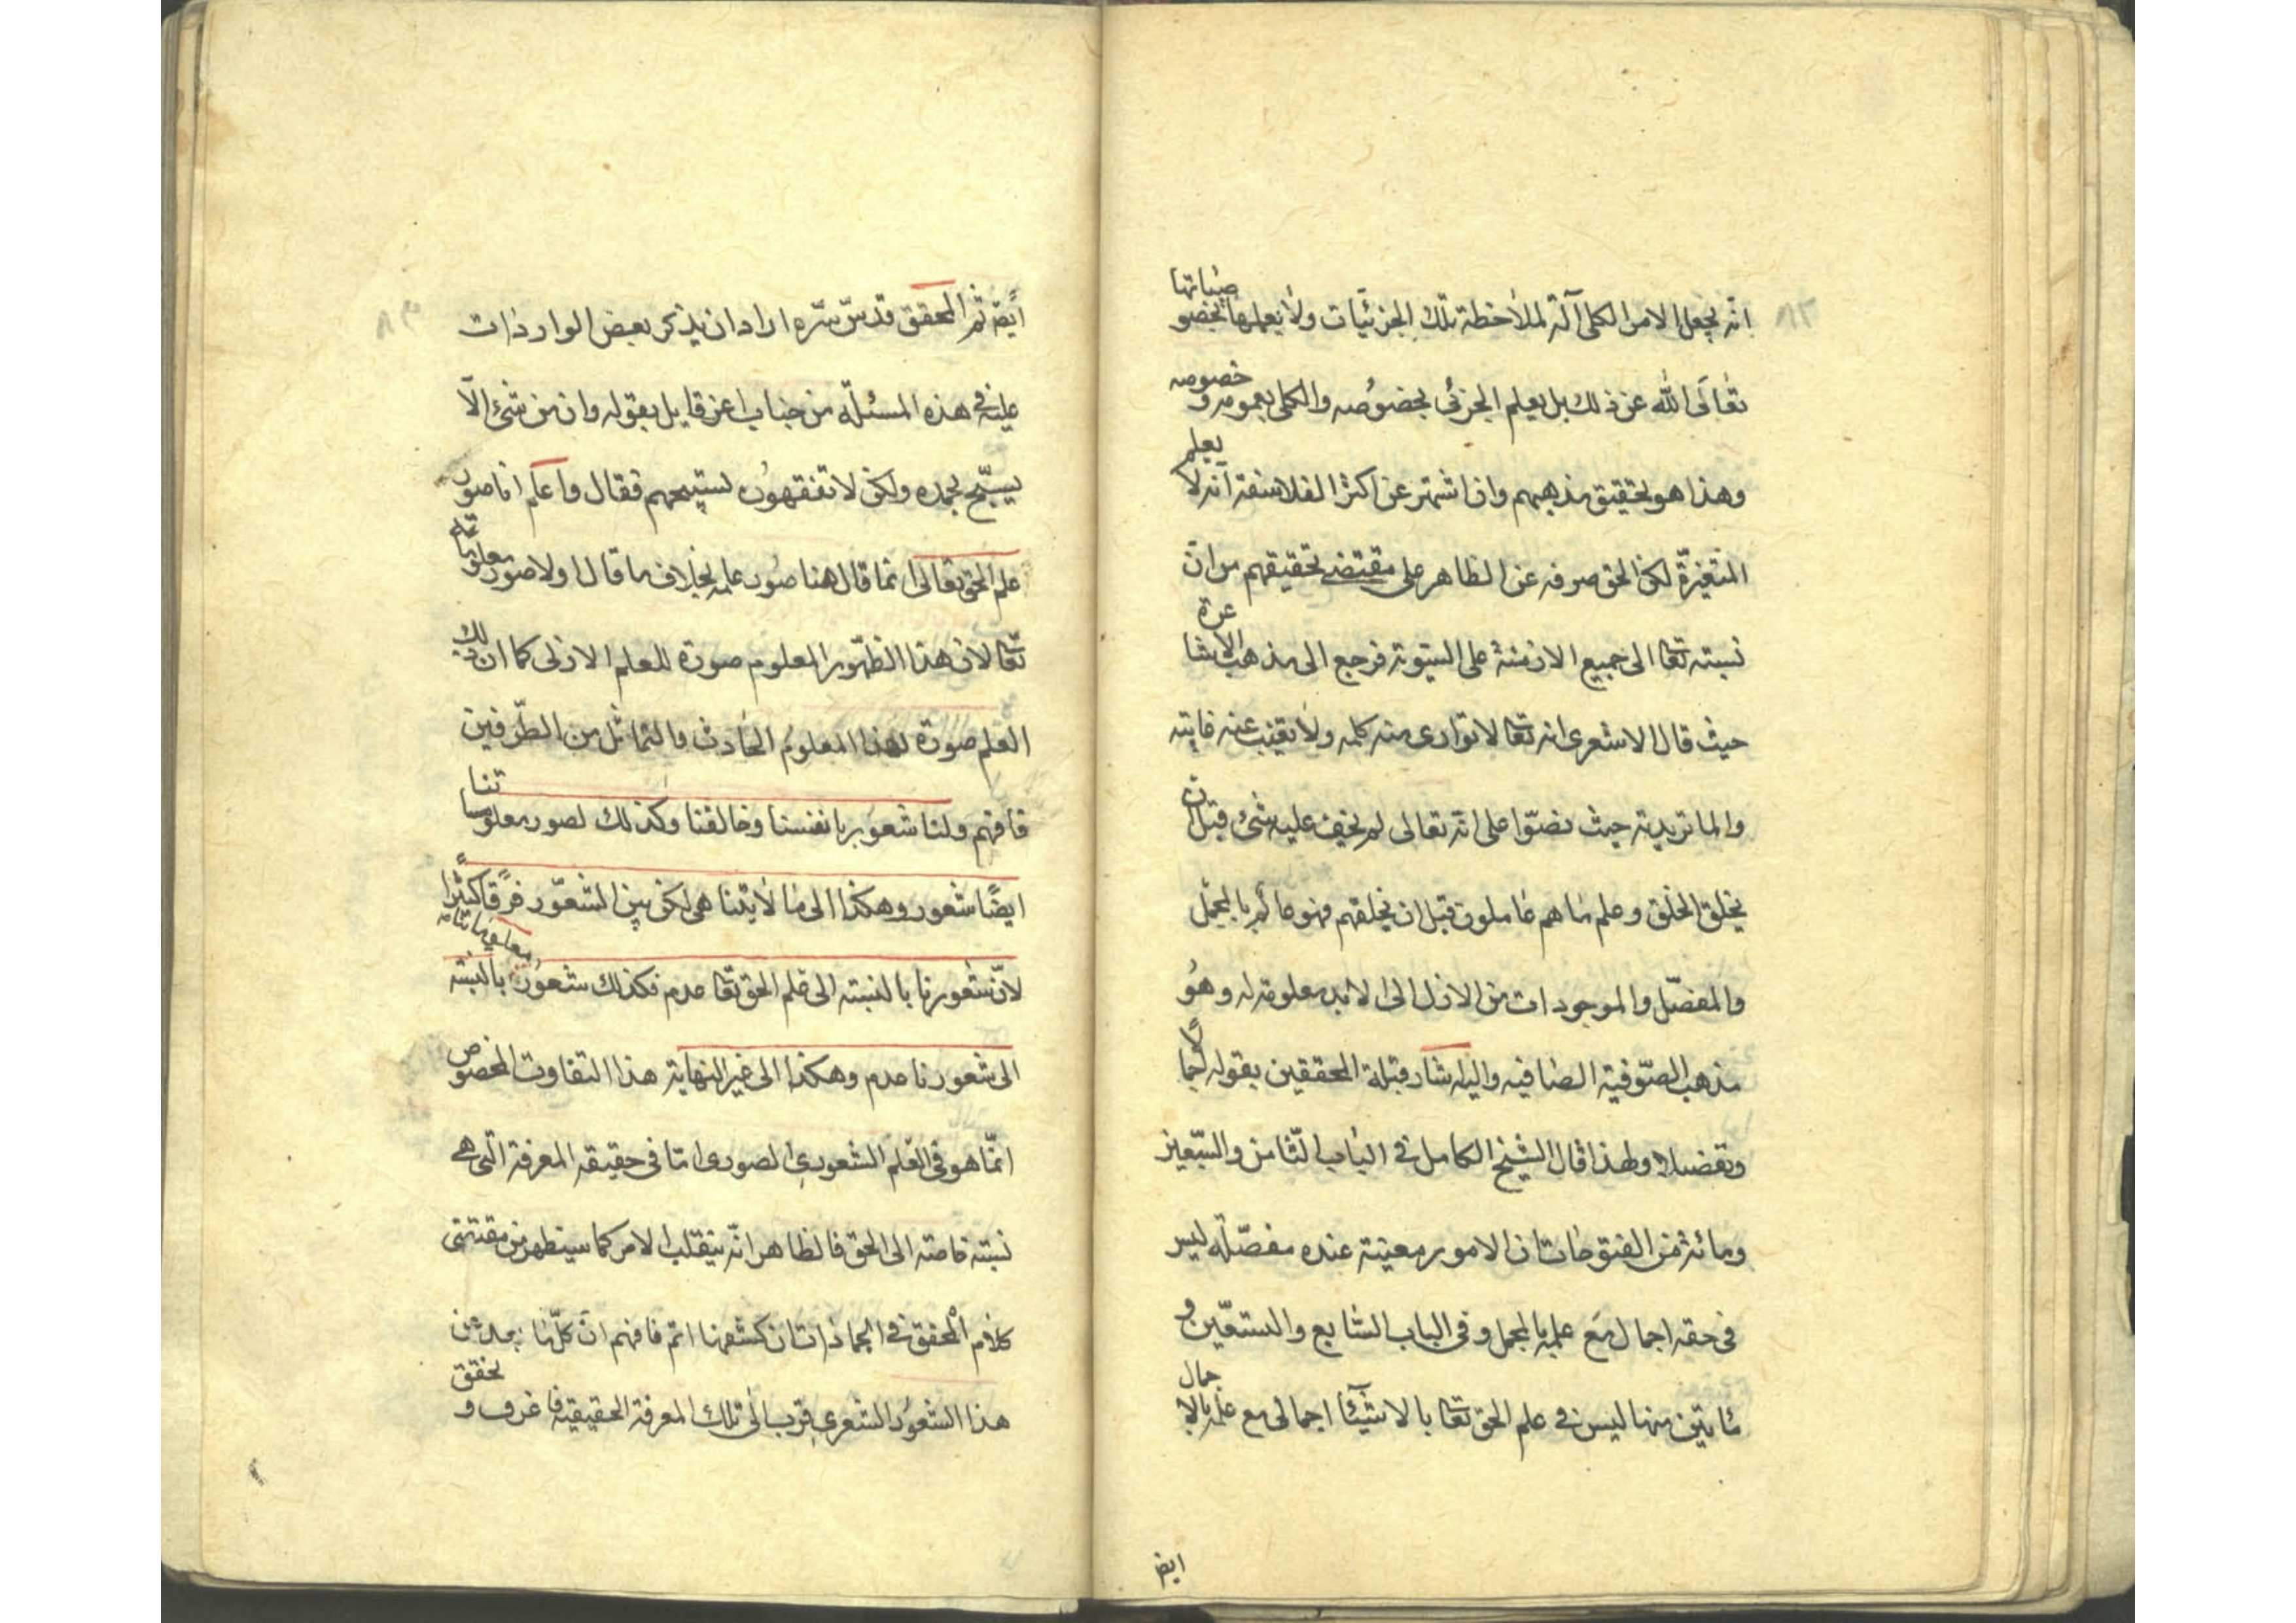 انه يجعل الامر الكلى آلة لملاحظة تلك الجزئيات ولا يعلمها بخصوصياتها
تعالى الله عن ذلك بل يعلم الجزئى بخصوصه والكلى بعمومه وخصوصه
وهذا هو تحقيق مذهبهم وان اشتهر عن اكثر الفلاسفة انه لا يعلم
المتغيرة لكن الحق صرفه عن الظاهر على مقتضى تحقيقهم من ان
نسبته تعا الى جميع الازمنة على السوية فرجع الى مذهب الاشاعرة
حيث قال الاشعرى انه تعا لا توارى منه كلمه ولا تغيب عنه غايته
والماتريدية حيث نصّوا على انه تعالى لم يخف عليه شئ قبل ان
يخلق الخلق وعلم ما هم عاملون قبل ان يخلقهم فهو عالم بالمجمل
والمفصّل والموجودات من الازل الى الابد معلومة له وهو
مذهب الصّوفية الصافيه واليه اشار قبلة المحققين بقوله اجمالا
وتفضيلا ولهذا قال الشيخ الكامل فى الباب الثامن والسبعين
ومائة من الفتوحات ان الامور معينة عنده مفصّلة ليس
فى حقه اجمال مع علمه بالمجمل وفى الباب السابع والستين و
مايتين منها ليس فى علم الحق تعا بالاشيئا اجمالى مع علمه بالاجمال
ايض
ايضا ثم المحقق قدس سره اراد ان يذكر بعض الواردات
علينا فى هذه المسئلة من جناب اعز قايل بقوله وان من شئ الّا
يسبّح بحمده ولكن لا تفقهون تسبيحهم فقال واعلم انا صور
علم الحق تعالى انما قال هنا صور علمه بخلاف ما قال اولا صور معلوماته
تعا لان هذا الظهور المعلوم صورة للعلم الازلى كما ان ذلك
العلم صورة لهذا المعلوم الحادث والتماثل من الطّرفين
فافهم ولنا شعور بانفسنا وخالقنا وكذلك لصور معلوماتنا
ايضًا شعور وهكذا الى ما لا يتناهى لكن بين الشعور فرقًا كثيرًا
لانّ شعورنا بالنسبته الى علم الحق تعا عدم فكذلك شعور معلوماتنا بالنبسته
الى شعورنا عدم وهكذا الى غير النهاية هذا التفاوت المخصوص
انمّا هو فى العلم الشعورى الصورى امّا فى حقيقه المعرفة التى هى
نسبته خاصته الى الحق فالظاهر انه ينقلب الامر كما سيظهر من مقتضى
كلام المحقق فى الجمادات ان كشفها اتم فافهم ان كلّما بعد عن
هذا الشعور الشعرى قرب الى تلك المعرفة الحقيقية فاعرف وتحقق